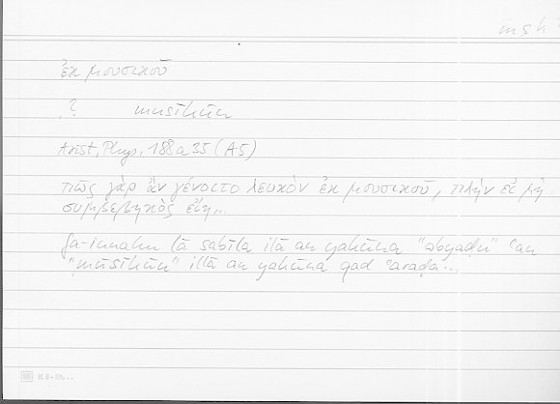 msh
ἐκ μουσικοῦ
? mūsīkūn
Arist., Phys., 188a35 (A5)
πῶς γὰρ ἂν γένοιτο λευκὸν ἐκ μουσικοῦ, πλὴν εἰ μὴ
συμβεβηκὸς εἴη...
fa-innahu lā sabīla ilā an yakūna "abyaḍu" ʿan
"mūsīkūn" illā an yakūna qad ʿaraḍa...